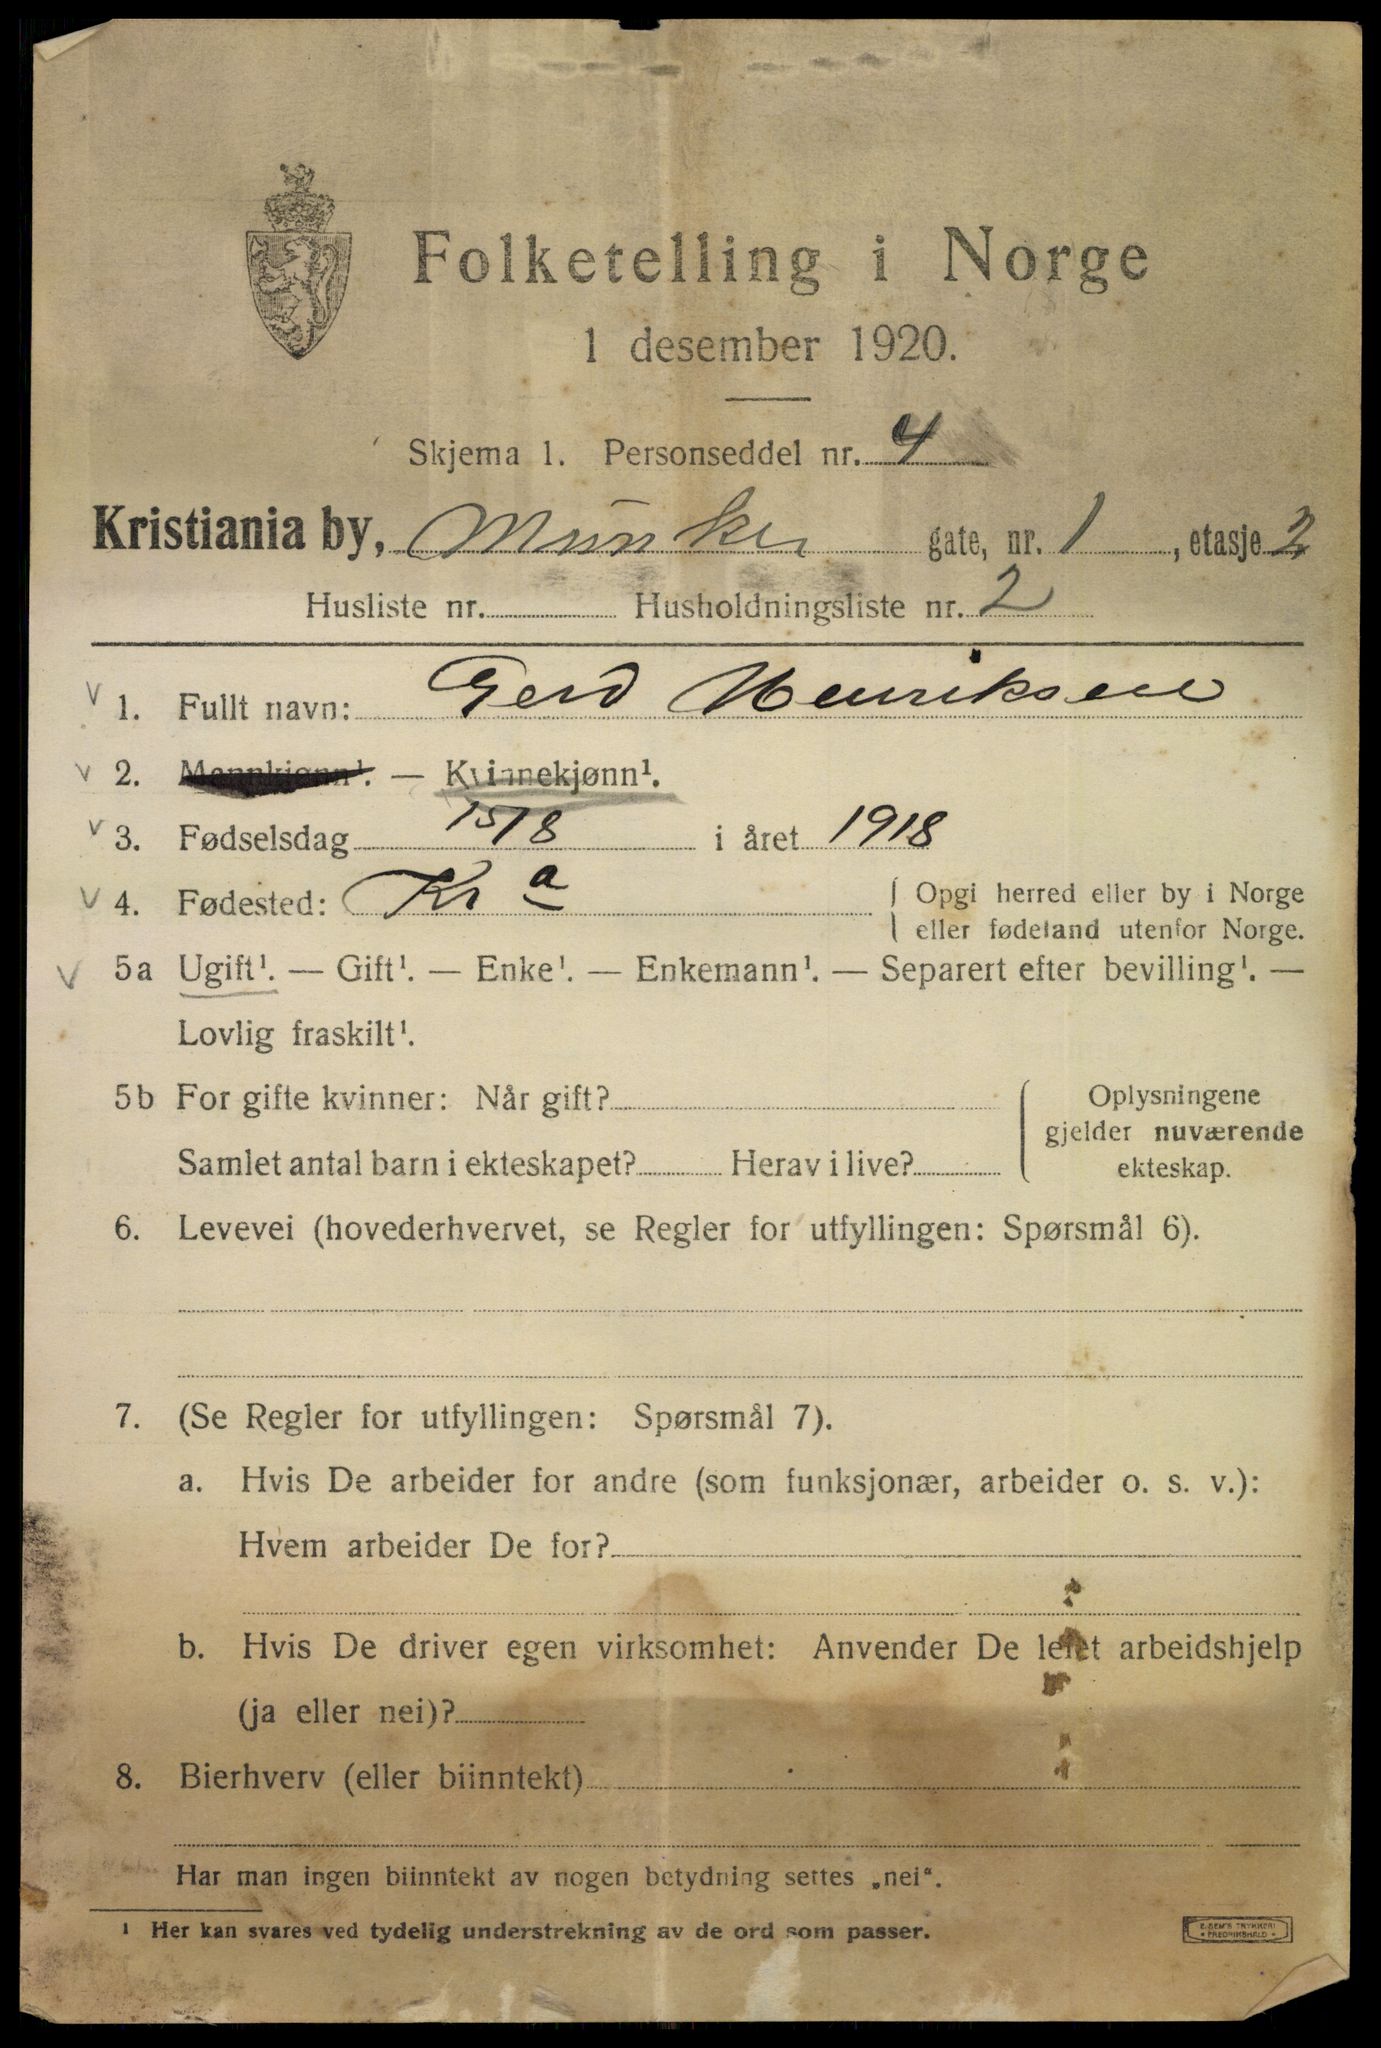 Folketelling i Norge
1 desember 1920.
Skjema 1. Personseddel nr. 4
Kristiania by, Munker gate, nr. 1, etasje 2
Husliste nr. Husholdningsliste nr. 2
v 1. Fullt navn: Gerd Henriksen
v 2. Mannkjønn¹. — Kvinnekjønn¹.
v 3. Fødselsdag 15/8 i året 1918
v 4. Fødested: Kr a { Opgi herred eller by i Norge
eller fødeland utenfor Norge.
v 5a Ugift¹. — Gift¹. — Enke¹. — Enkemann¹. — Separert efter bevilling¹. —
Lovlig fraskilt¹.
5b For gifte kvinner: Når gift? { Oplysningene
gjelder nuværende
Samlet antal barn i ekteskapet? Herav i live? ekteskap.
6. Levevei (hovederhvervet, se Regler for utfyllingen: Spørsmål 6).
7. (Se Regler for utfyllingen: Spørsmål 7).
a. Hvis De arbeider for andre (som funksjonær, arbeider o. s. v.):
Hvem arbeider De for?
b. Hvis De driver egen virksomhet: Anvender De leiet arbeidshjelp
(ja eller nei)?
8. Bierhverv (eller biinntekt)
Har man ingen biinntekt av nogen betydning settes „nei“.
¹ Her kan svares ved tydelig understrekning av de ord som passer.
E. SEM'S TRYKKERI
* FREDRIKSHALD *